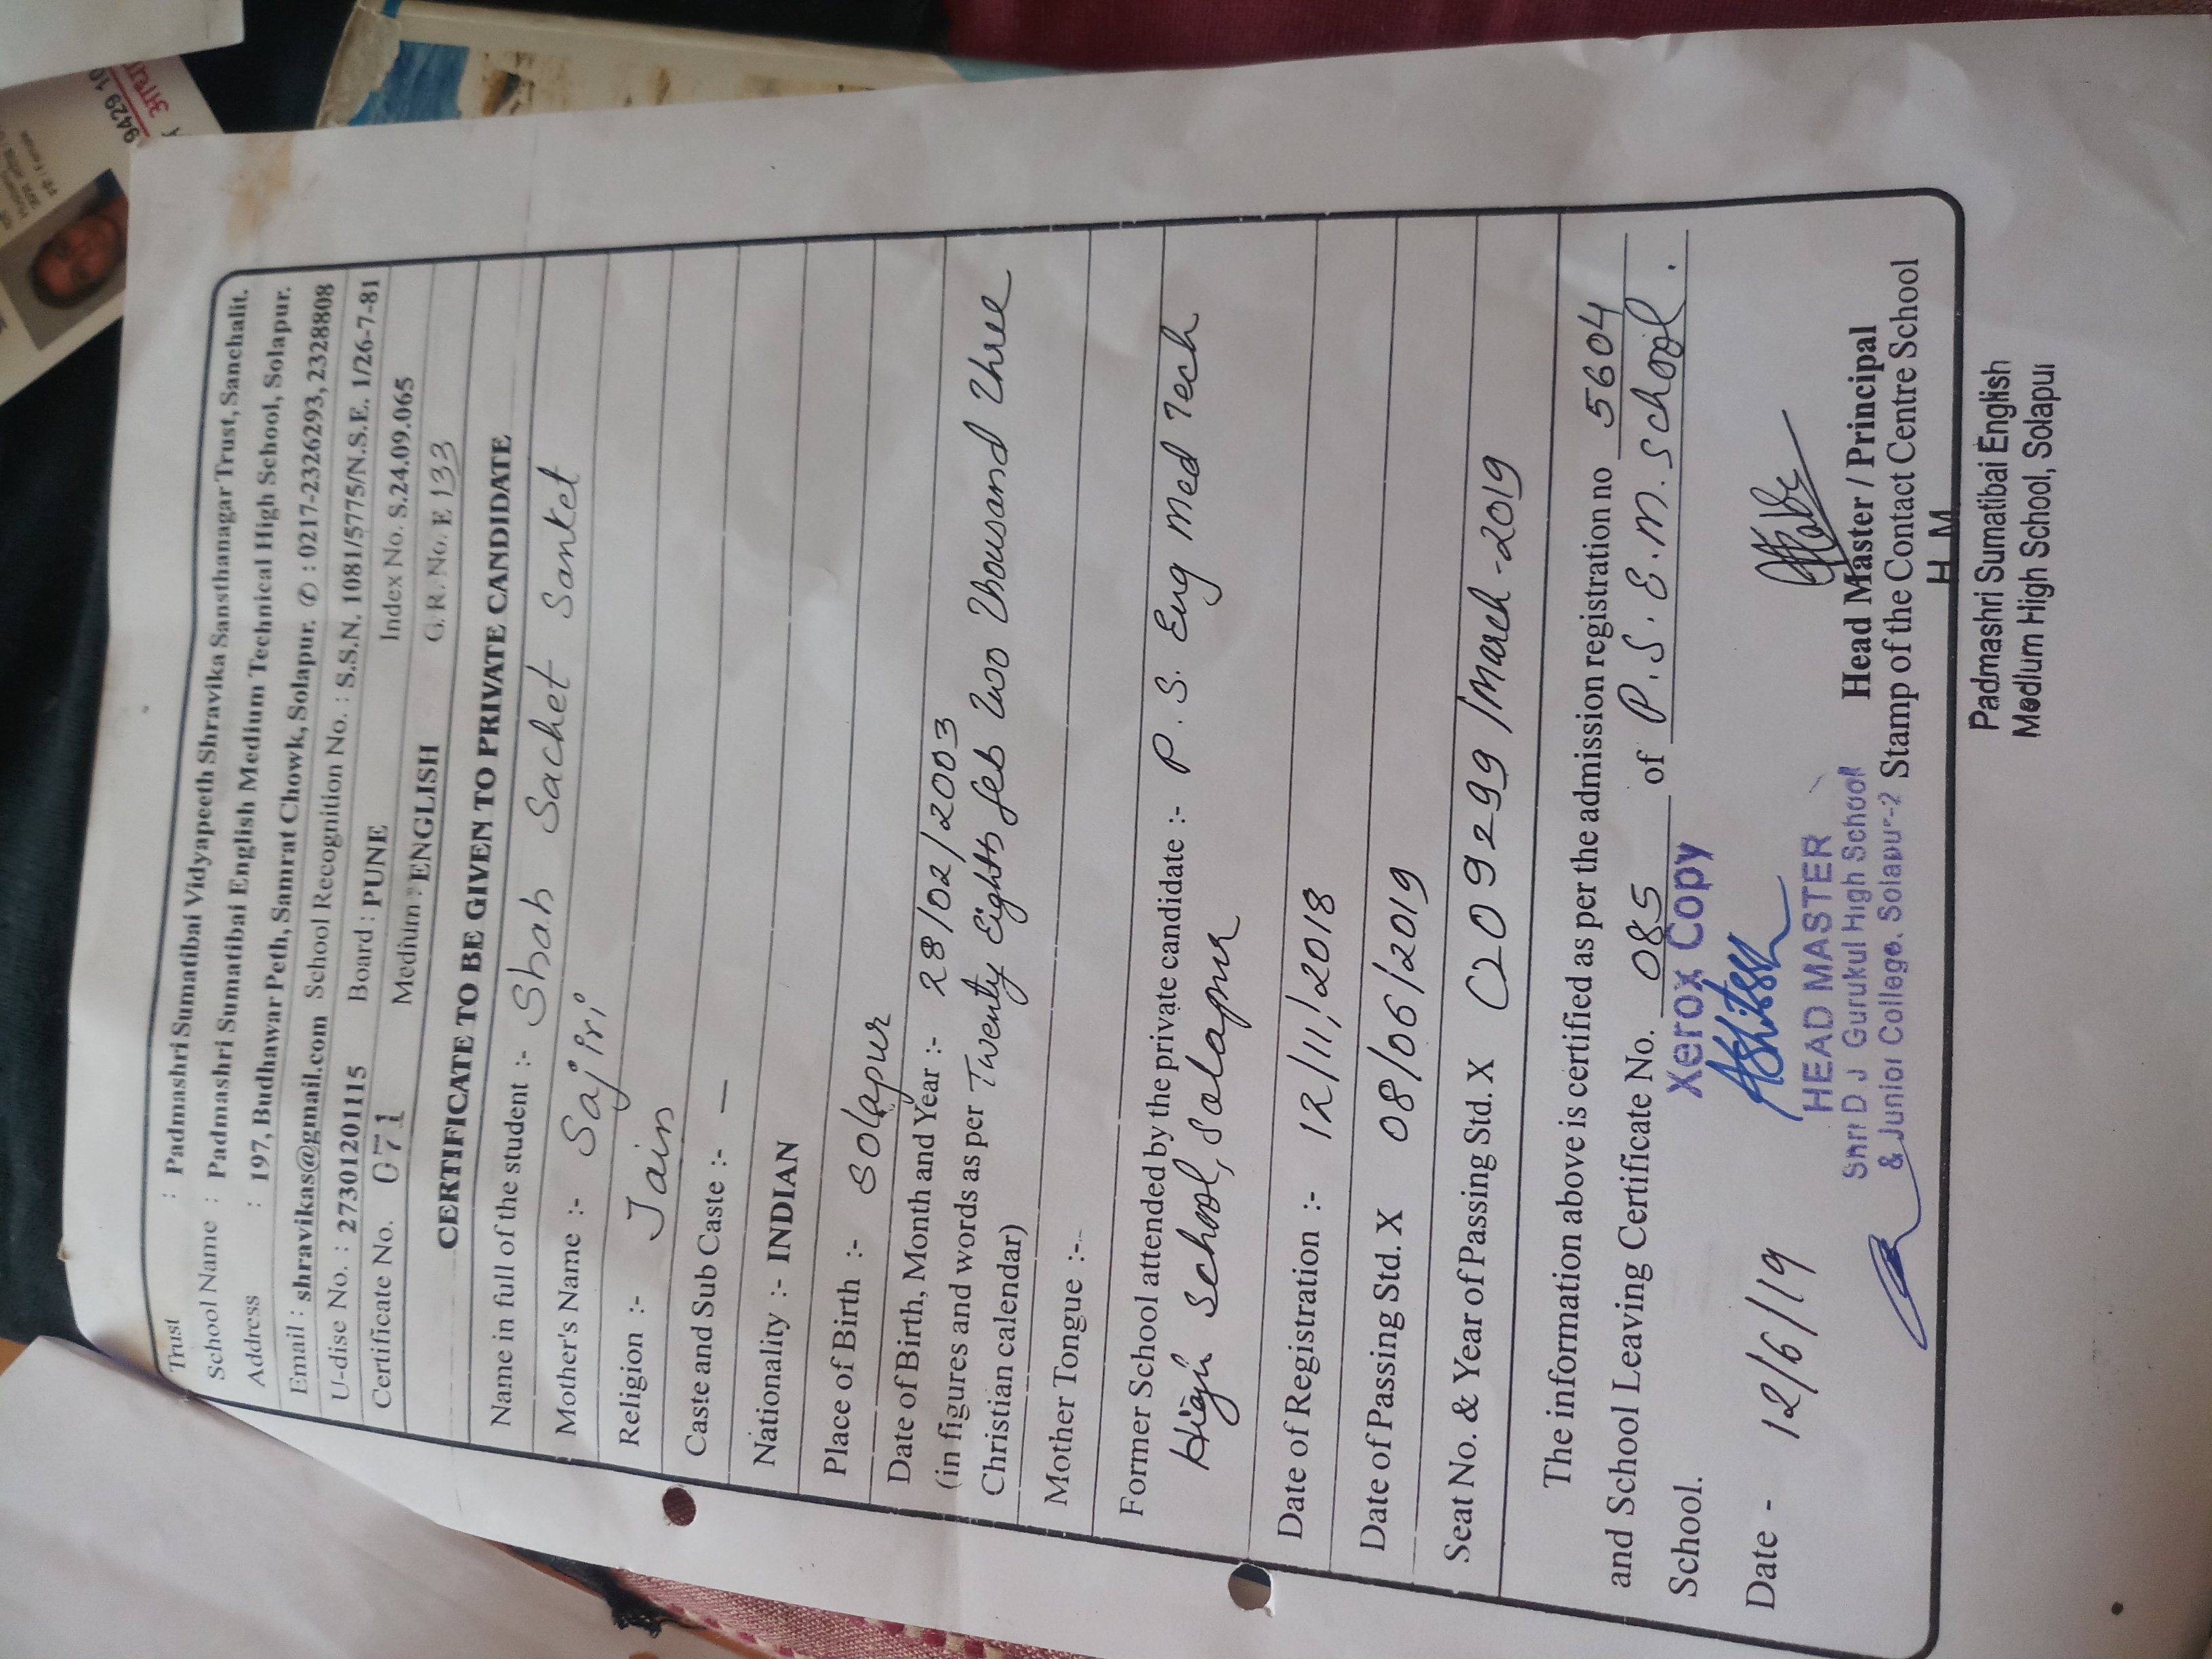 Trust : Padmashri Sumatibai Vidyapeeth Shravika Sansthanagar Trust, Sanchalit.
School Name : Padmashri Sumatibai English Medium Technical High School, Solapur.
Address : 197, Budhawar Peth, Samrat Chowk, Solapur. ✆ : 0217-2326293, 2328808
Email : shravikas@gmail.com School Recognition No. : S.S.N. 1081/5775/N.S.E. 1/26-7-81
U-dise No. : 27301201115 Board : PUNE Index No. S.24.09.065
Certificate No. 071 Medium : ENGLISH G.R. No. E 133
CERTIFICATE TO BE GIVEN TO PRIVATE CANDIDATE
Name in full of the student :- Shah Sachet Sanket
Mother's Name :- Sajiri
Religion :- Jain
Caste and Sub Caste :- —
Nationality :- INDIAN
Place of Birth :- Solapur
Date of Birth, Month and Year :- 28/02/2003
(in figures and words as per Twenty Eighth feb Two Thousand Three
Christian calendar)
Mother Tongue :-
Former School attended by the private candidate :- P. S. Eng Med Tech
High School, Solapur
Date of Registration :- 12/11/2018
Date of Passing Std. X 08/06/2019
Seat No. & Year of Passing Std. X C209299/March-2019
The information above is certified as per the admission registration no 5604
and School Leaving Certificate No. 085 of P.S.E.M. School.
School.
Xerox Copy
Date - 12/6/19
HEAD MASTER
Shri D J Gurukul High School
& Junior College, Solapur-2
Head Master / Principal
Stamp of the Contact Centre School
H M
Padmashri Sumatibai English
Medium High School, Solapur
9429 10